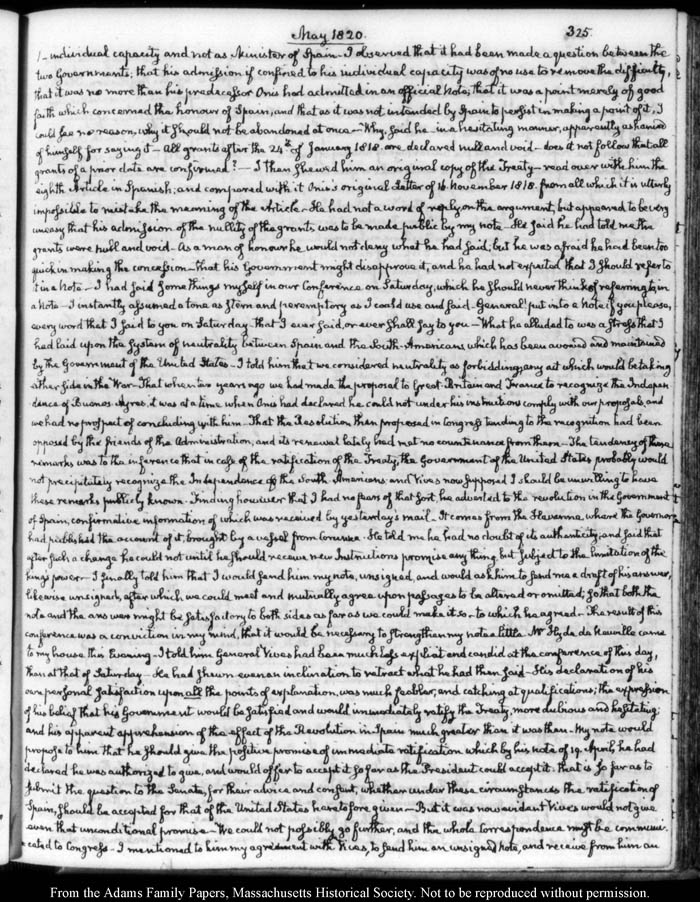 May 1820.
325
1 - individual capacity and not as Minister of Spain - I observed that it had been made a question between the
two Governments; that his admission if confined to his individual capacity was of no use to remove the difficulty,
that it was no more than his predecessor Onis had admitted in an official Note; that it was a point merely of good
faith which concerned the honour of Spain, and that as it was not intended by Spain to persist in making a point of it, I
could see no reason, why it should not be abandoned at once - Why, said he in a hesitating manner, apparently ashamed
of himself for saying it - All grants after the 24th of January 1818. are declared null and void - does it not follow that all
grants of a prior date are confirmed? - I then shewed him an original copy of the Treaty - read over with him the
eighth Article in Spanish; and compared with it Onis's original Letter of 16. November 1818. from all which it is utterly
impossible to mistake the meaning of the Article - He had not a word of reply on the argument, but appeared to be very
uneasy that his admission of the nullity of the grants was to be made public by my note - He said he had told me the
grants were null and void - As a man of honour he would not deny what he had said, but he was afraid he had been too
quick in making the concession - that his Government might disapprove it, and he had not expected that I should refer to
it in a Note - I had said some things myself in our Conference on Saturday, which he should never think of referring to, in
a Note - I instantly assumed a tone as stern and peremptory as I could use and said - General! put into a Note if you please,
every word that I said to you on Saturday - that I ever said, or ever shall say to you - What he alluded to was a stress that I
had laid upon the system of neutrality between Spain and the South-Americans, which has been avowed and maintained
by the Government of the United States - I told him that we considered neutrality as forbidding any act which would be taking
either side in the War - That when two years ago we had made the proposal to Great-Britain and France to recognize the Indepen-
dence of Buenos-Ayres, it was at a time when Onis had declared he could not under his instructions comply with our proposals, and
we had no prospect of concluding with him - That the Resolution then proposed in Congress tending to the recognition had been
opposed by the friends of the Administration, and its renewal lately had met no countenance from them - The tendency of these
remarks was to the inference that in case of the ratification of the Treaty, the Government of the United States probably would
not precipitately recognize the Independence of the South Americans and Vives now supposed I should be unwilling to have
these remarks publicly known - Finding however that I had no fears of that sort, he adverted to the revolution in the Government
of Spain, confirmative information of which was received by yesterday's mail - It comes from the Havanna, where the Governor
had published the account of it, brought by a vessel from Corunna - He told me he had no doubt of its authenticity, and said that
after such a change he could not until he should receive new Instructions promise any thing but subject to the limitation of the
King's power - I finally told him that I would send him my note, unsigned, and would ask him to send me a draft of his answer,
likewise unsigned, after which we could meet and mutually agree upon passages to be altered or omitted; so that both the
note and the answer might be satisfactory to both sides as far as we could make it so - to which he agreed - The result of this
conference was a conviction in my mind, that it would be necessary to strengthen my note a little - Mr Hyde de Neuville came
to my house this Evening - I told him General Vives had been much less explicit and candid at the conference of this day,
than at that of Saturday - He had shewn even an inclination to retract what he had then said - His declaration of his
own personal satisfaction upon all the points of explanation, was much feebler, and catching at qualifications; the expression
of his belief that his Government would be satisfied and would immediately ratify the Treaty, more dubious and hesitating;
and his apparent apprehension of the effect of the Revolution in Spain much greater than it was then - My note would
propose to him that he should give the positive promise of immediate ratification which by his note of 19. April, he had
declared he was authorized to give, and would offer to accept it so far as the President could accept it. that is so far as to
submit the question to the Senate, for their advice and consent, whether under these circumstances the ratification of
Spain, should be accepted for that of the United States heretofore given - But it was now evident Vives would not give
even that unconditional promise - We could not possibly go further, and the whole correspondence must be communi-
cated to Congress - I mentioned to him my agreement with Vives, to send him an unsigned note, and receive from him an
From the Adams Family Papers, Massachusetts Historical Society. Not to be reproduced without permission.